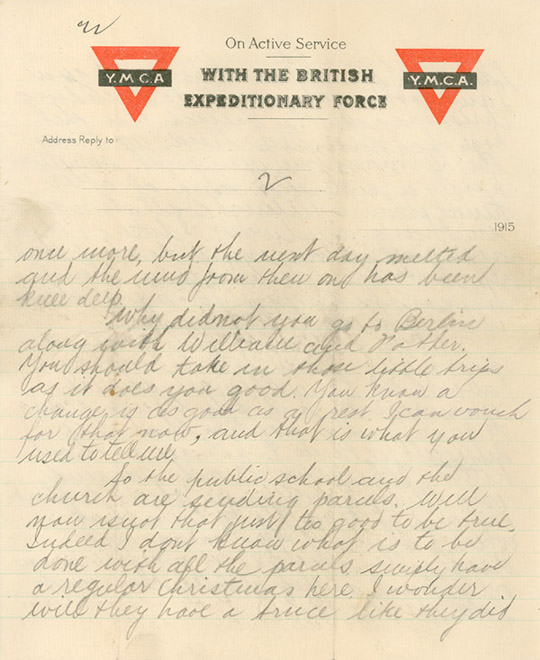 On Active Service
Y.M.C.A
WITH THE BRITISH
EXPEDITIONARY FORCE
Y.M.C.A.
Address Reply to
2
1915
once more, but the next day melted
and the mud from then on has been
knee deep
Why didnot you go to Berlin
along with William and Father.
You should take in those little trips
as it does you good. You know a
change is as good as a rest I can vouch
for that now, and that is what you
used to tell me
So the public school and the
church are sending parcels. Well
now isnot that just too good to be true.
Indeed I dont know what is to be
done with all the parcels simply have
a regular Christmas here. I wonder
will they have a truce like they did